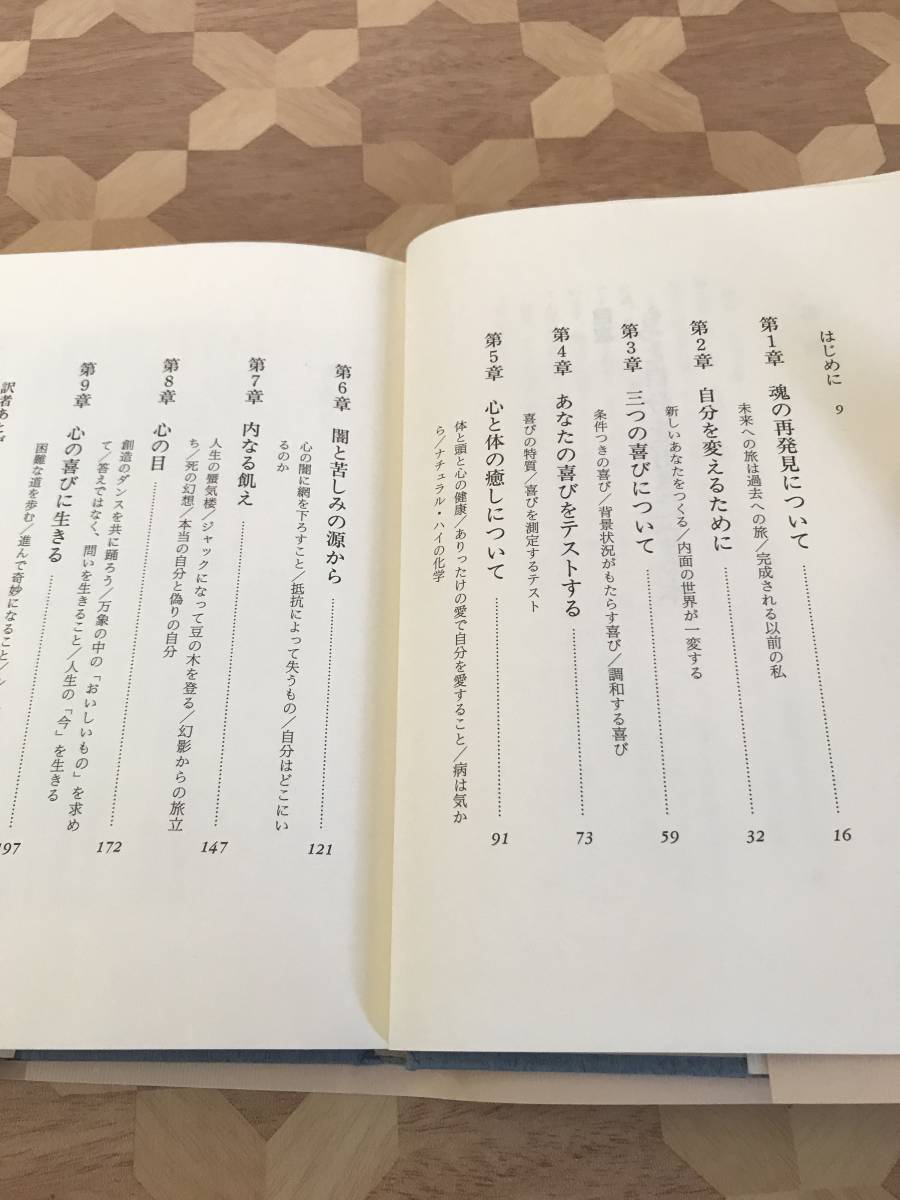 はじめに 9
第1章 魂の再発見について……16
未来への旅は過去への旅/完成される以前の私
第2章 自分を変えるために……32
新しいあなたをつくる/内面の世界が一変する
第3章 三つの喜びについて……59
条件つきの喜び/背景状況がもたらす喜び/調和する喜び
第4章 あなたの喜びをテストする……73
喜びの特質/喜びを測定するテスト
第5章 心と体の癒しについて……91
体と頭と心の健康/ありったけの愛で自分を愛すること/病は気か
ら/ナチュラル・ハイの化学
第6章 闇と苦しみの源から……121
心の闇に網を下ろすこと/抵抗によって失うもの/自分はどこにい
るのか
第7章 内なる飢え……147
人生の蜃気楼/ジャックになって豆の木を登る/幻影からの旅立
ち/死の幻想/本当の自分と偽りの自分
第8章 心の目……172
創造のダンスを共に踊ろう/万象の中の「おいしいもの」を求め
て/答えではなく、問いを生きること/人生の「今」を生きる
第9章 心の喜びに生きる……197
困難な道を歩む/進んで奇妙になること/
訳者あとが